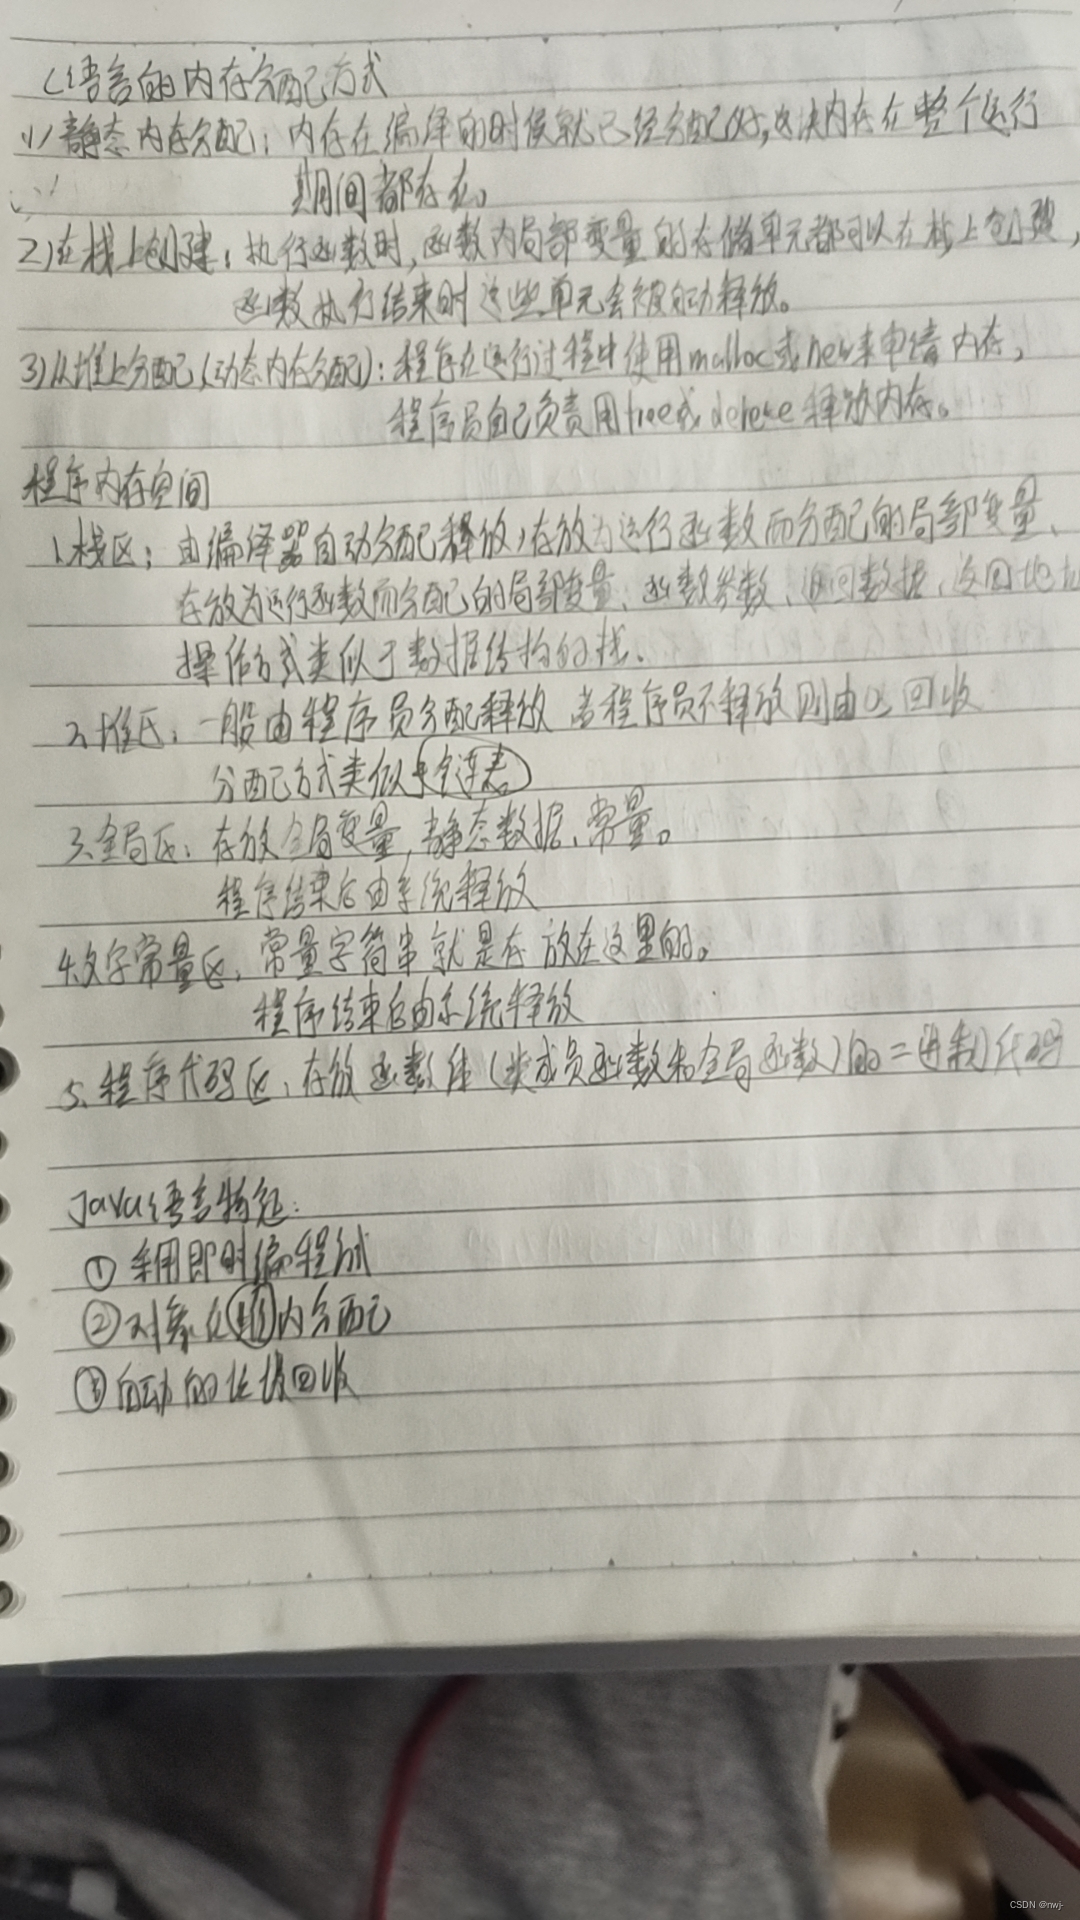 C语言的内存分配方式
(1)静态内存分配：内存在编译的时候就已经分配好，这块内存在整个运行
期间都存在。
2)在栈上创建：执行函数时，函数内局部变量的存储单元都可以在栈上创建，
函数执行结束时这些单元会被自动释放。
3)从堆上分配(动态内存分配)：程序在运行过程中使用malloc或new来申请内存，
程序员自己负责用free或delete释放内存。
程序内存空间
1.栈区：由编译器自动分配释放，存放为运行函数而分配的局部变量、
存放为运行函数而分配的局部变量、函数参数、返回数据、返回地址
操作方式类似于数据结构的栈.
2.堆区：一般由程序员分配释放 若程序员不释放则由OS回收
分配方式类似于链表。
3.全局区：存放全局变量，静态数据、常量。
程序结束后由系统释放
4.文字常量区、常量字符串就是存放在这里的。
程序结束后由系统释放
5.程序代码区、存放函数体(类成员函数和全局函数)的二进制代码
Java语言特征:
① 采用即时编程
② 对象在堆内分配
③ 自动的垃圾回收
CSDN @nwj-